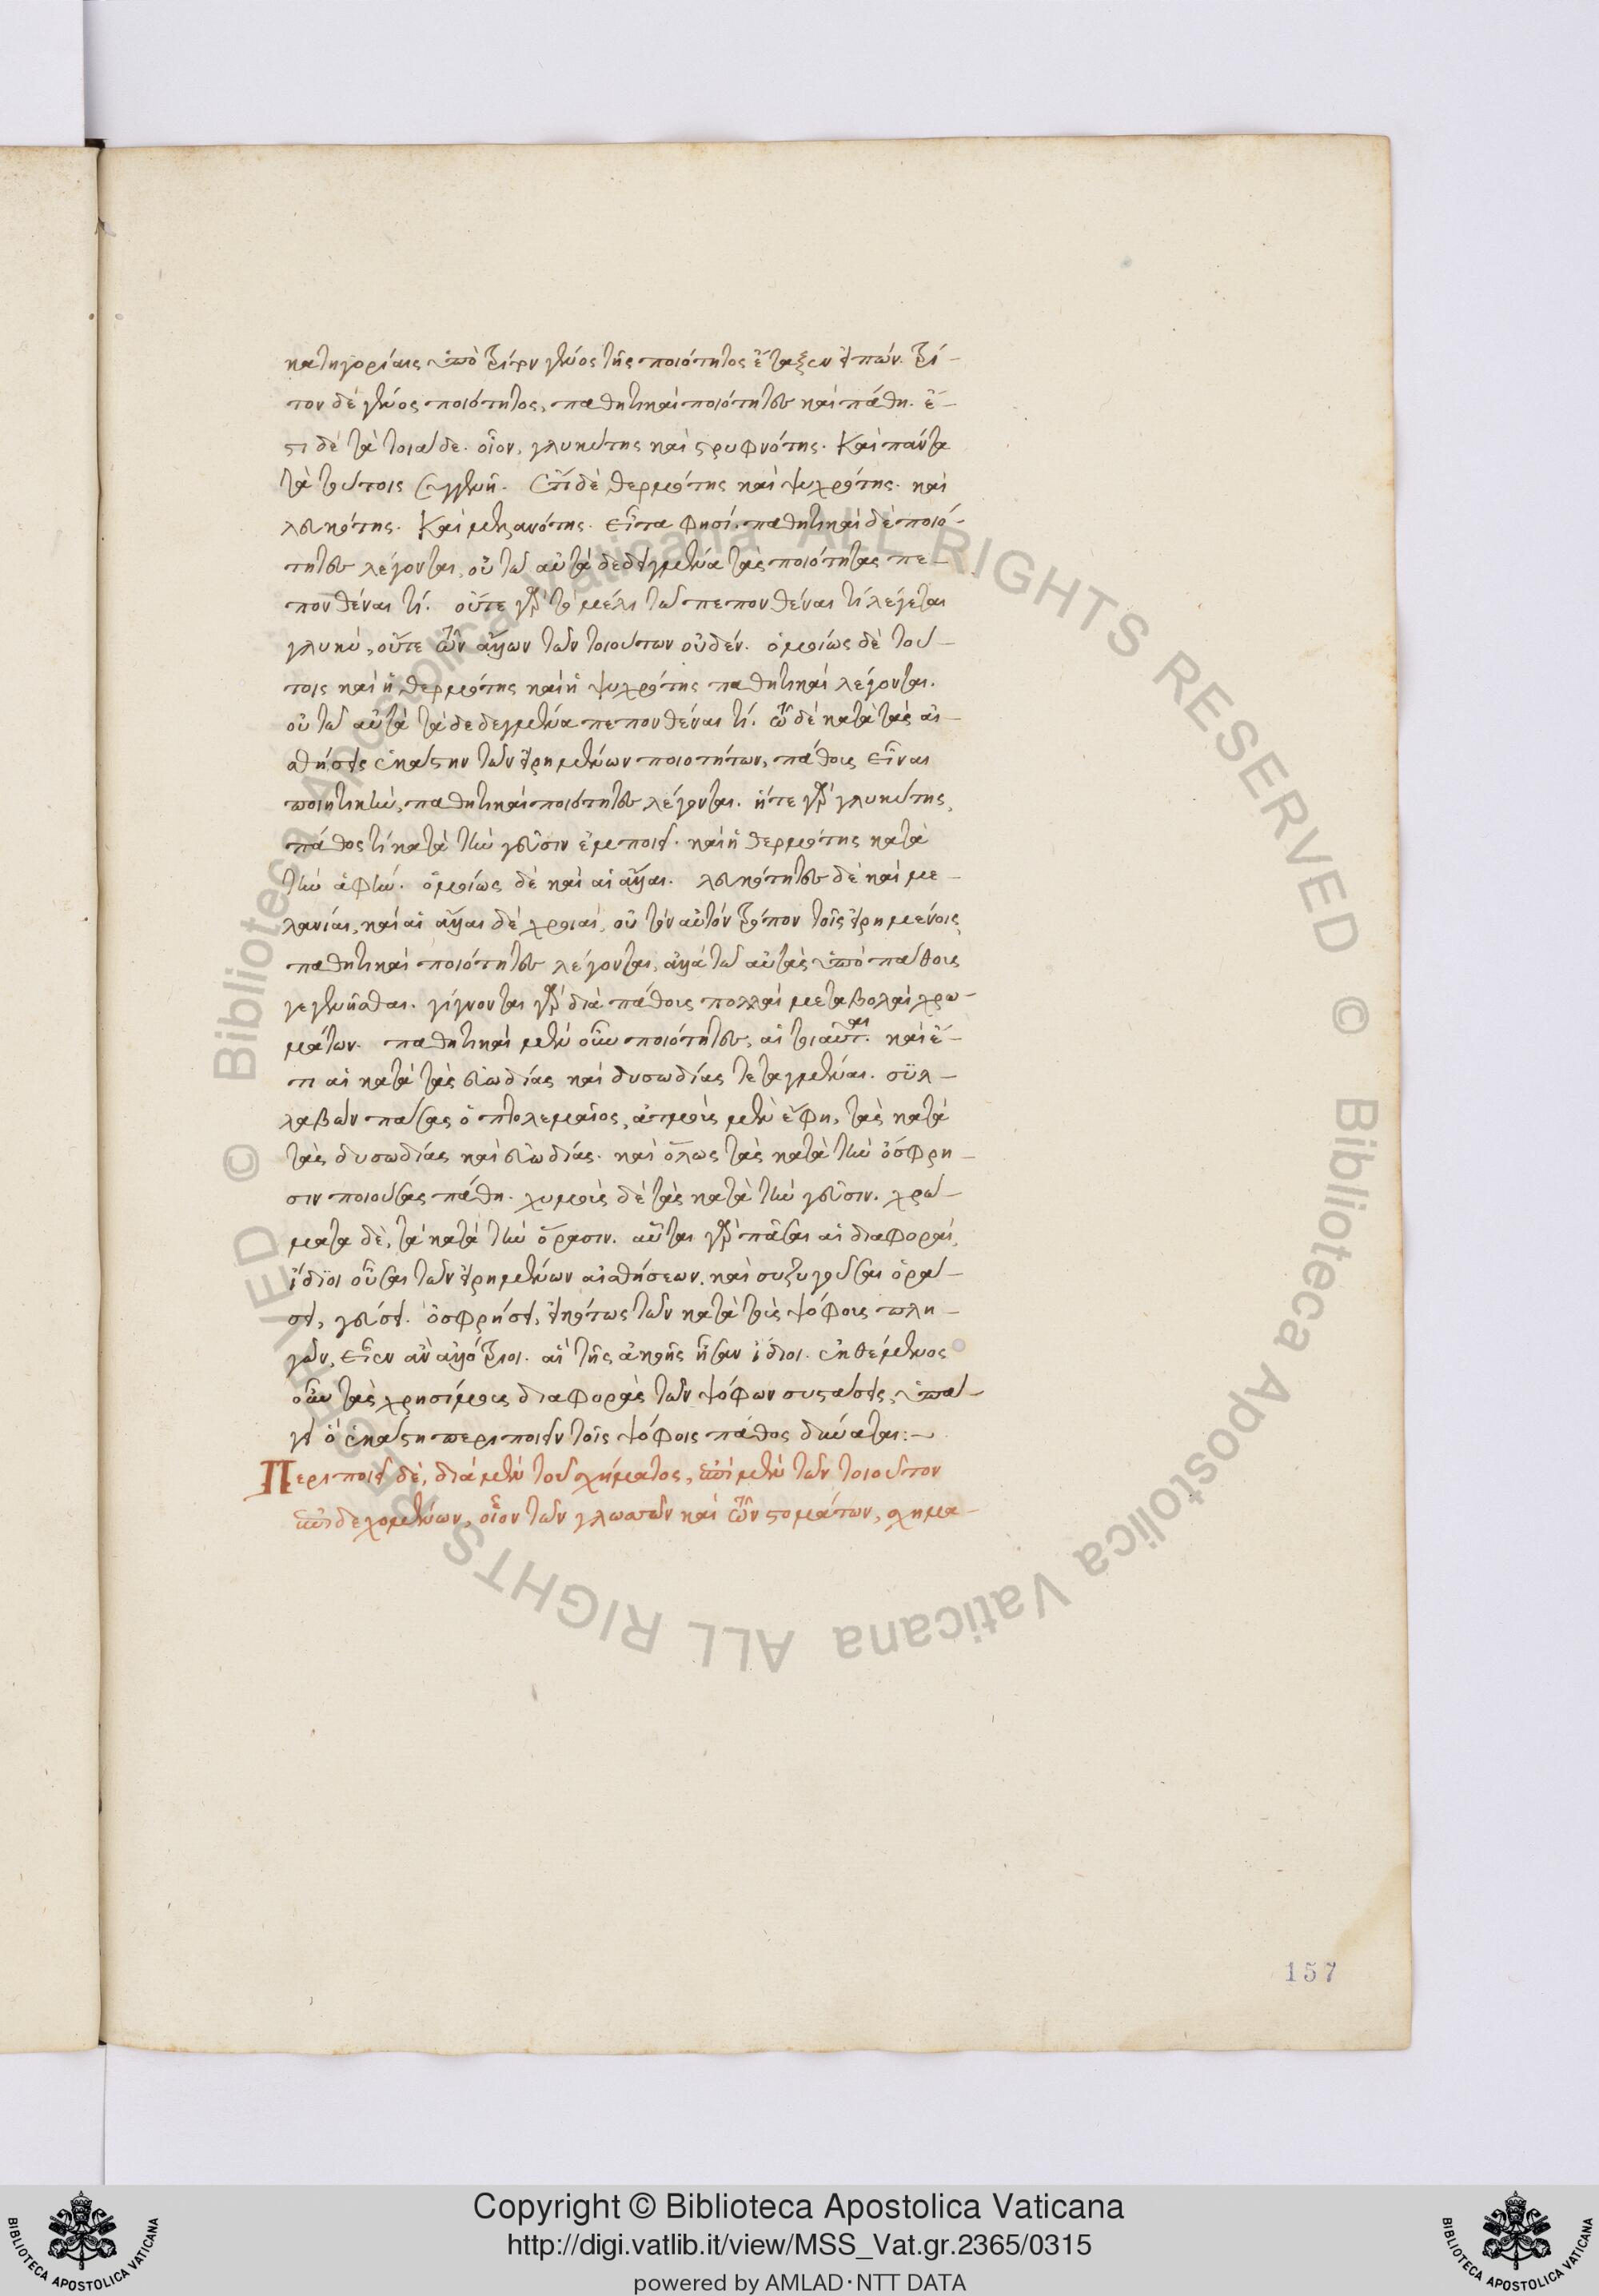 κατηγορίαις ὑπὸ τρίτον γένος τῆς ποιότητος ἔταξεν εἰπών. τρί-
τον δὲ γένος ποιότητος, παθητικαὶ ποιότητες καὶ πάθη. ἔ-
στι δὲ τὰ τοιάδε. οἷον, γλυκύτης καὶ στρυφνότης. Καὶ πάντα
τὰ τούτοις συγγενῆ. ἔτι δὲ θερμότης καὶ ψυχρότης. καὶ
λευκότης. Καὶ μελανότης. εἶτα φησί. παθητικαὶ δὲ ποιό-
τητες λέγονται, οὐ τῷ αὐτὰ δεδεγμένα τὰς ποιότητας πε-
πονθέναι τί. οὔτε γὰρ τὸ μέλι τῷ πεπονθέναι τὶ λέγεται
γλυκὺ, οὔτε τῶν ἄλλων τῶν τοιούτων οὐδέν. ὁμοίως δὲ τού-
τοις καὶ ἡ θερμότης καὶ ἡ ψυχρότης παθητικαὶ λέγονται.
οὐ τῷ αὐτὰ τὰ δεδεγμένα πεπονθέναι τί. τῷ δὲ κατὰ τὰς αἰ-
σθήσεις ἑκάστην τῶν εἰρημένων ποιοτήτων, πάθους εἶναι
ποιητικὴν, παθητικαὶ ποιότητες λέγονται. ἥτε γὰρ γλυκύτης,
πάθος τὶ κατὰ τὴν γεῦσιν ἐμποιεῖ. καὶ ἡ θερμότης κατὰ
τὴν ἁφήν. ὁμοίως δὲ καὶ αἱ ἄλλαι. λευκότητες δὲ καὶ με-
λανίαι, καὶ αἱ ἄλλαι δὲ χροιαὶ, οὐ τὸν αὐτὸν τρόπον τοῖς εἰρημένοις,
παθητικαὶ ποιότητες λέγονται, ἀλλὰ τῷ αὐτὰς ὑπὸ πάθους
γεγενῆσθαι. γίγνονται γὰρ διὰ πάθους πολλαὶ μεταβολαὶ χρω-
μάτων. παθητικαὶ μὲν οὖν ποιότητες, αἱ τοιαῦται. καὶ ἔ-
τι αἱ κατὰ τὰς εὐωδίας καὶ δυσωδίας τεταγμέναι. συλ-
λαβὼν πάσας ὁ πτολεμαῖος, ἀτμοὺς μὲν ἔφη, τὰς κατὰ
τὰς δυσωδίας καὶ εὐωδίας. καὶ ὅλως τὰς κατὰ τὴν ὄσφρη-
σιν ποιούσας πάθη. χυμοὺς δὲ τὰς κατὰ τὴν γεῦσιν. χρώ-
ματα δὲ, τὰ κατὰ τὴν ὅρασιν. αὗται γὰρ πᾶσαι αἱ διαφοραὶ,
ἴδιοι οὖσαι τῶν εἰρημένων αἰσθήσεων. καὶ συζυγοῦσαι ὁρά-
σει, γεύσει. ὀσφρήσει, εἰκότως τῶν κατὰ τοὺς ψόφους πλη-
γῶν, εἶεν ἂν ἀλλότριοι. αἳ τῆς ἀκοῆς ἦσαν ἴδιοι. ἐκθέμενος
οὖν τὰς χρησίμους διαφορὰς τῶν ψόφων συστάσεις, ὑπά-
γει ὃ ἑκάστη περιποιεῖν τοῖς ψόφοις πάθος δύναται:-
Περιποιεῖ δὲ, διὰ μὲν τοῦ σχήματος, ἐπὶ μὲν τῶν τοιοῦτον
ἐπιδεχομένων, οἷον τῶν γλωσσῶν καὶ τῶν στομάτων, σχημα-
157
Copyright © Biblioteca Apostolica Vaticana
http://digi.vatlib.it/view/MSS_Vat.gr.2365/0315
powered by AMLAD·NTT DATA
BIBLIOTECA APOSTOLICA VATICANA
BIBLIOTECA APOSTOLICA VATICANA
© Biblioteca Apostolica Vaticana ALL RIGHTS RESERVED © Biblioteca Apostolica Vaticana ALL RIGHTS RESERVED